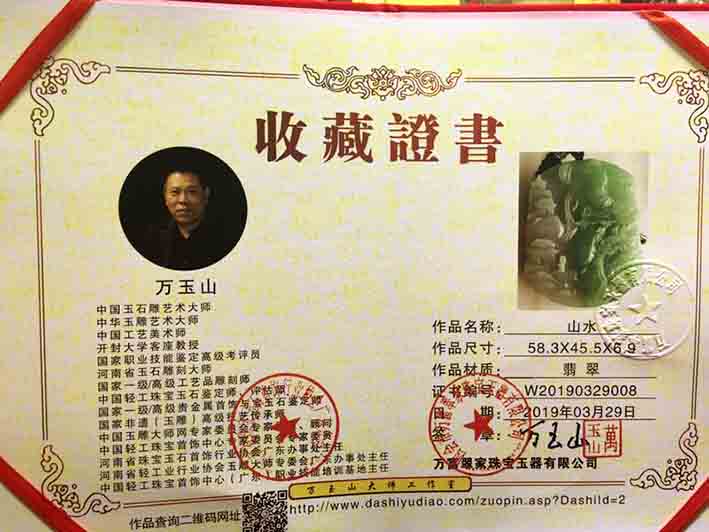 收藏證書
万玉山
中国玉石雕艺术大师
中华玉雕艺术大师
中国工艺美术师
开封大学客座教授
国家职业技能鉴定高级考评员
河南省玉石雕刻大师
国家一级/高级工艺品雕刻师
中国轻工珠宝玉石鉴定师、评估师
国家一级/高级贵金属首饰与宝玉石鉴定师
国家非遗(玉雕)高级技艺传承师
中国玉雕大师网专家委员会专家、顾问
中国轻工珠宝首饰中心专家委员会专家委员
河南省珠宝玉石首饰行业协会广东办事处主任
河南省轻工业行业协会玉雕大师专委会广东办事处主任
中国轻工珠宝首饰中心(广东)职业技能培训基地主任
作品名称: 山水
作品尺寸: 58.3X45.5X6.9
作品材质: 翡翠
证书编号: W20190329008
日期: 2019年03月29日
签章: 万玉山
万富翠家珠宝玉器有限公司
万玉山大师工作室
作品查询二维码网址
http://www.dashiyudiao.com/zuopin.asp?DashiId=2